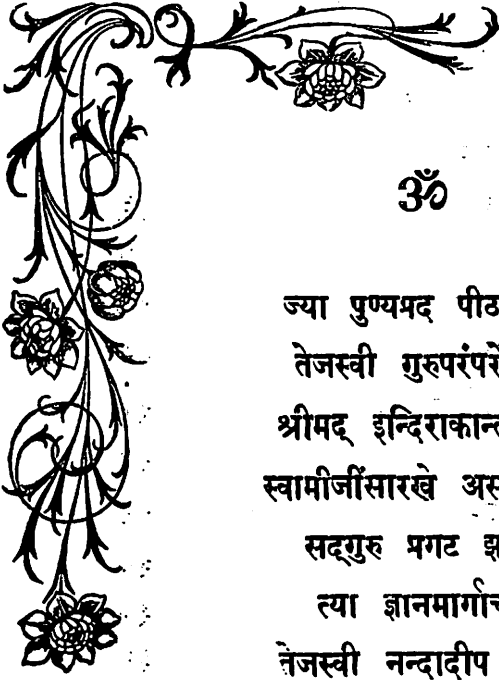 ॐ
ज्या पुण्यप्रद पीठ
तेजस्वी गुरुपरंपरे
श्रीमद् इन्दिराकान्त
स्वामीजींसारखे अस
सद्‌गुरु प्रगट झा
त्या ज्ञानमार्गाच
तेजस्वी नन्दादीप